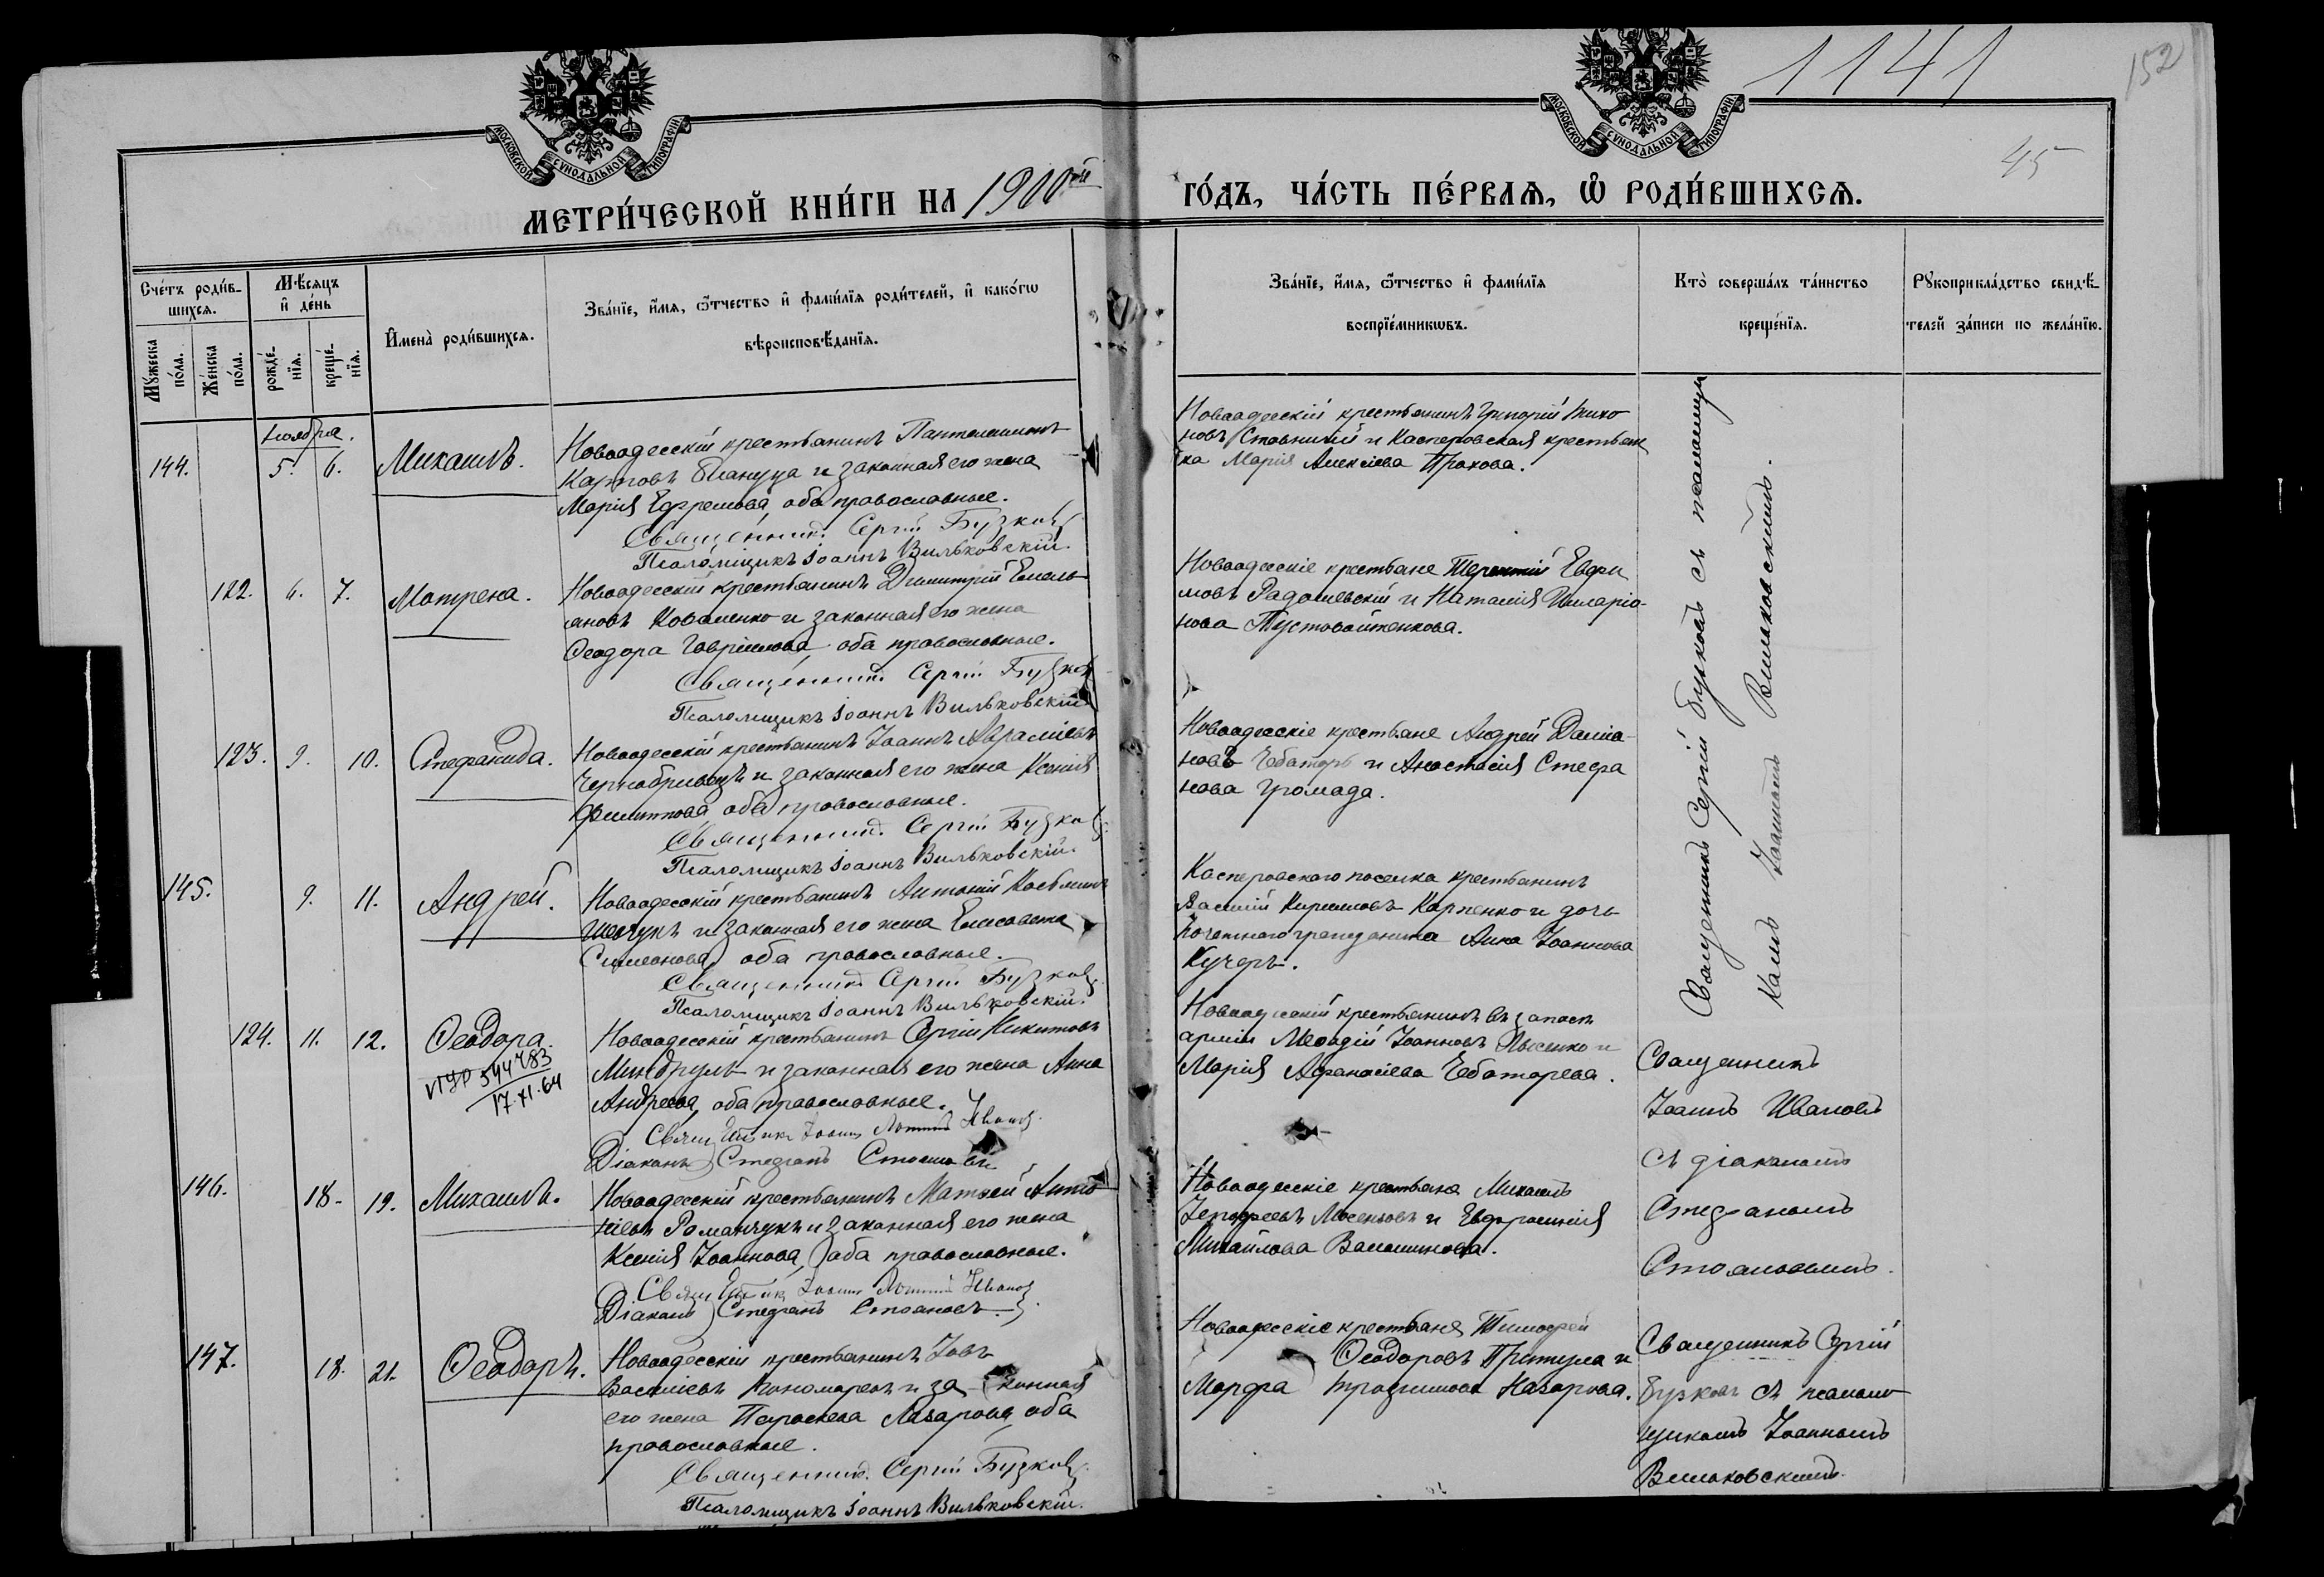 1141
152
45
МОСКОВСКОЙ СѴНОДАЛЬНОЙ ТИПОГРАФІИ
МОСКОВСКОЙ СѴНОДАЛЬНОЙ ТИПОГРАФІИ
МЕТРИ́ЧЕСКОЙ КНИ́ГИ НА 1900ый
ГО́ДЪ, ЧА́СТЬ ПЕ́РВАѦ, Ѡ҆ РОДИ́ВШИХСѦ.
Сче́тъ роди́в-
шихсѧ.
Мѣ́сѧцъ
и҆ де́нь
Мꙋ́жеска по́ла.
Же́нска по́ла.
рожде́-нїѧ.
креще́-нїѧ.
И҆мена̀ роди́вшихсѧ.
Зва́нїе, и҆́мѧ, ѻ҆́тчество и҆ фами́лїѧ роди́телей, и҆ како́гѡ
вѣроисповѣ́данїѧ.
Зва́нїе, и҆́мѧ, ѻ҆́тчество и҆ фами́лїѧ
воспрїе́мникѡвъ.
Кто̀ соверша́лъ та́инство
креще́нїѧ.
Рꙋкоприкла́дство свидѣ́-
телей за́писи по жела́нїю.
Ноября.
144. 5. 6. Михаилъ.
Новоодесскій крестьянинъ Пантелеимонъ
Карповъ и законная его жена
Марія Ефремова, оба православные.
Священникъ Сергій Бузковъ
Псаломщикъ Іоаннъ Вильковскій.
Новоодесскій крестьянинъ Григорій Тихо
новъ Ставничій и Касперовская крестьян
ка Марія Алексіева Прохова.
122. 6. 7. Матрена.
Новоодесскій крестьянинъ Димитрій Емель
яновъ Коваленко и законная его жена
Ѳеодора Гавріилова, оба православные.
Священникъ Сергій Бузковъ
Псаломщикъ Іоаннъ Вильковскій
Новоодесскіе крестьяне Терентій Евфи
мовъ Радошевскій и Наталія Иларіо-
нова Пустовойтенкова.
123. 9. 10. Стефанида.
Новоодесскій крестьянинъ Іоаннъ Авраміевъ
Чернобривецъ и законная его жена Ксенія
Филиппова, оба православные.
Священникъ Сергій Бузковъ
Псаломщикъ Іоаннъ Вильковскій.
Новоодесскіе крестьяне Андрей Даміа-
новъ Чеботарь и Анастасія Стефа
нова Громада.
145. 9. 11. Андрей.
Новоодесскій крестьянинъ Антоній Косьминъ
Шевчукъ и законная его жена Елисавета
Симеонова, оба православные.
Священникъ Сергій Бузковъ
Псаломщикъ Іоаннъ Вильковскій.
Касперовского поселка крестьянинъ
Василій Кирилловъ Карпенко и дочь
почетнаго гражданина Анна Іоаннова
Кучеръ.
Священникъ Сергій Бузковъ съ псаломщи
комъ Іоанномъ Вильковскимъ.
124. 11. 12. Ѳеодора.
544783
17.XI.64
Новоодесскій крестьянинъ Сергій Никитовъ
Миндруль и законная его жена Анна
Андреева, оба православные.
Священникъ Іоаннъ Ивановъ
Діаконъ Стефанъ Стояновъ
Новоодесскій крестьянинъ въ запасѣ
арміи Меѳодій Іоанновъ Лысенко и
Марія Афанасіева Чеботарева.
Священникъ
Іоаннъ Ивановъ
съ діакономъ
Стефаномъ
Стояновымъ.
146. 18. 19. Михаилъ.
Новоодесскій крестьянинъ Матѳей Анто
ніевъ Романчукъ и законная его жена
Ксенія Іоаннова, оба православные.
Священникъ Іоаннъ Ивановъ
Діаконъ Стефанъ Стояновъ.
Новоодесскіе крестьяне Михаилъ
и Евфросинія
Михайлова Валошинова.
147. 18. 21. Ѳеодоръ.
Новоодесскій крестьянинъ Іовъ
Василіевъ Пономаревъ и законная
его жена Параскева Лазарова, оба
православные.
Священникъ Сергій Бузковъ
Псаломщикъ Іоаннъ Вильковскій.
Новоодесскіе крестьяне Тимофей
Ѳеодоровъ Притула и
Марфа Трофимова Назарова.
Священникъ Сергій
Бузковъ съ псаломо
щикомъ Іоанномъ
Вильковскимъ.